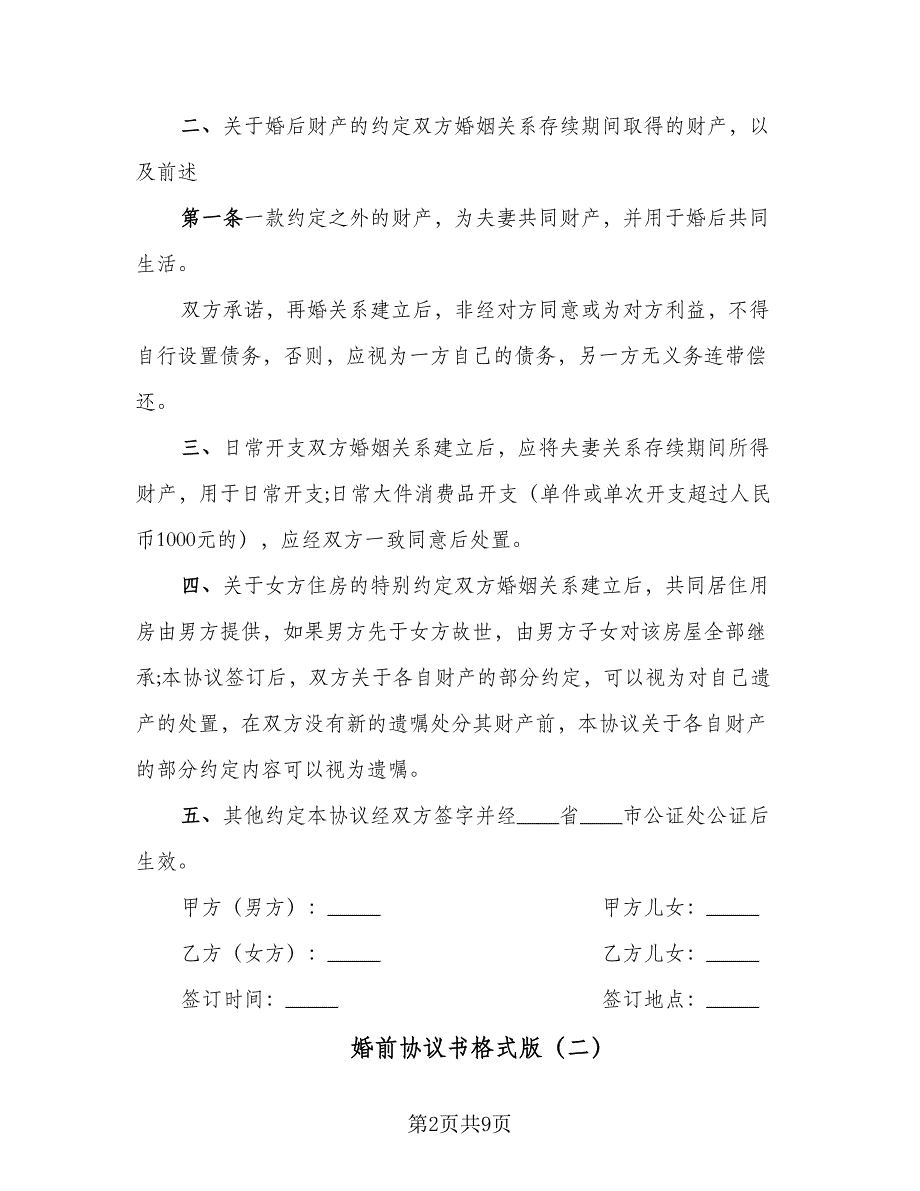 二、关于婚后财产的约定双方婚姻关系存续期间取得的财产，以
及前述
第一条一款约定之外的财产，为夫妻共同财产，并用于婚后共同
生活。
双方承诺，再婚关系建立后，非经对方同意或为对方利益，不得
自行设置债务，否则，应视为一方自己的债务，另一方无义务连带偿
还。
三、日常开支双方婚姻关系建立后，应将夫妻关系存续期间所得
财产，用于日常开支;日常大件消费品开支（单件或单次开支超过人民
币1000元的），应经双方一致同意后处置。
四、关于女方住房的特别约定双方婚姻关系建立后，共同居住用
房由男方提供，如果男方先于女方故世，由男方子女对该房屋全部继
承;本协议签订后，双方关于各自财产的部分约定，可以视为对自己遗
产的处置，在双方没有新的遗嘱处分其财产前，本协议关于各自财产
的部分约定内容可以视为遗嘱。
五、其他约定本协议经双方签字并经____省____市公证处公证后
生效。
甲方（男方）：_____ 甲方儿女：_____
乙方（女方）：_____ 乙方儿女：_____
签订时间：_____ 签订地点：_____
婚前协议书格式版（二）
第2页共9页